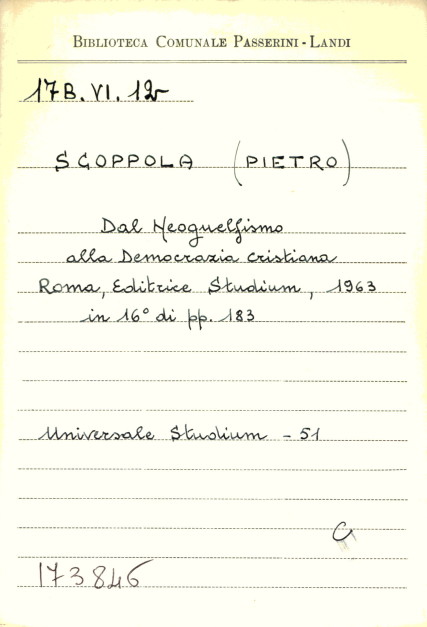 BIBLIOTECA COMUNALE PASSERINI - LANDI
17B. VI. 12
SCOPPOLA (PIETRO)
Dal Neoguelfismo
alla Democrazia cristiana
Roma, Editrice Studium, 1963
in 16° di pp. 183
Universale Studium - 51
G
173846